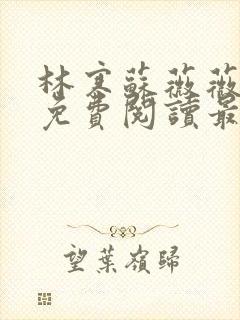 林寒蘇薇薇
免費閱讀最
望葉嶺歸